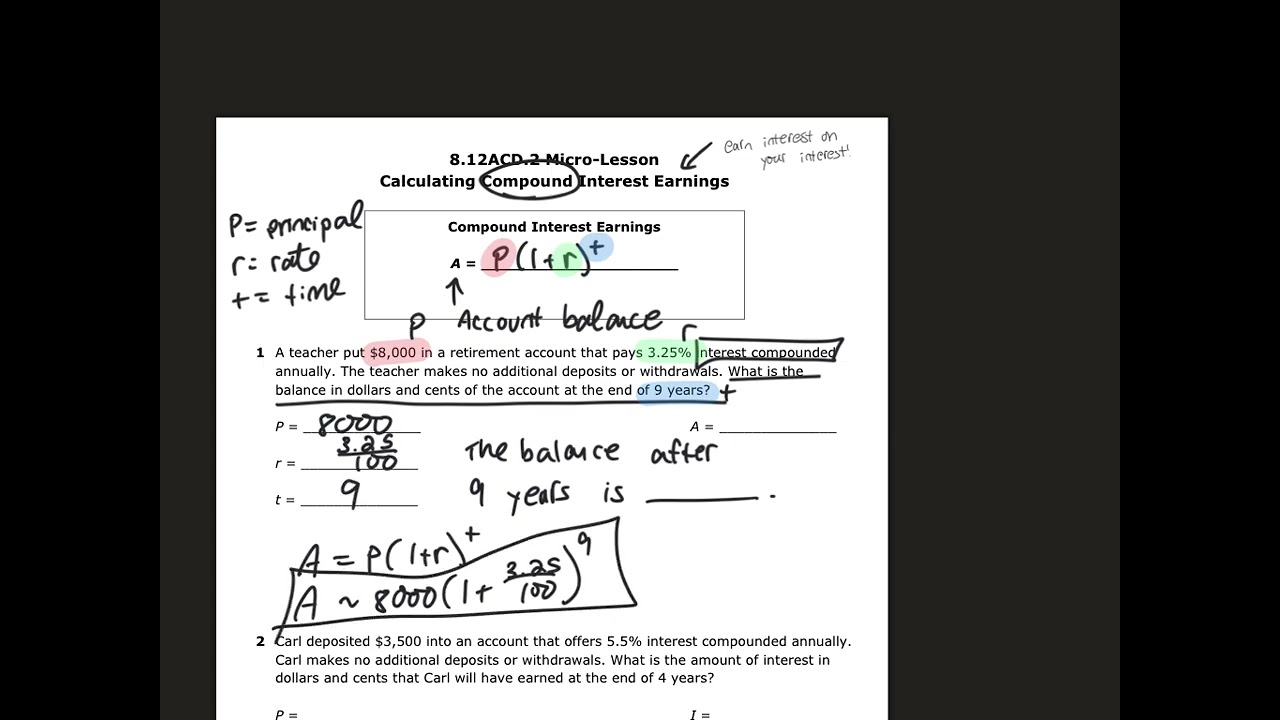 earn interest on
your interest!
8.12ACD.2 Micro-Lesson
Calculating Compound Interest Earnings
P= principal
r= rate
t= time
Compound Interest Earnings
A = P(1+r)^t
P Account balance
r
1 A teacher put $8,000 in a retirement account that pays 3.25% interest compounded
annually. The teacher makes no additional deposits or withdrawals. What is the
balance in dollars and cents of the account at the end of 9 years? t
P = 8000
A = ______________
r = 3.25/100
t = 9
The balance after
9 years is ______.
A = P(1+r)^t
A ~ 8000(1 + 3.25/100)^9
2 Carl deposited $3,500 into an account that offers 5.5% interest compounded annually.
Carl makes no additional deposits or withdrawals. What is the amount of interest in
dollars and cents that Carl will have earned at the end of 4 years?
P =
I =